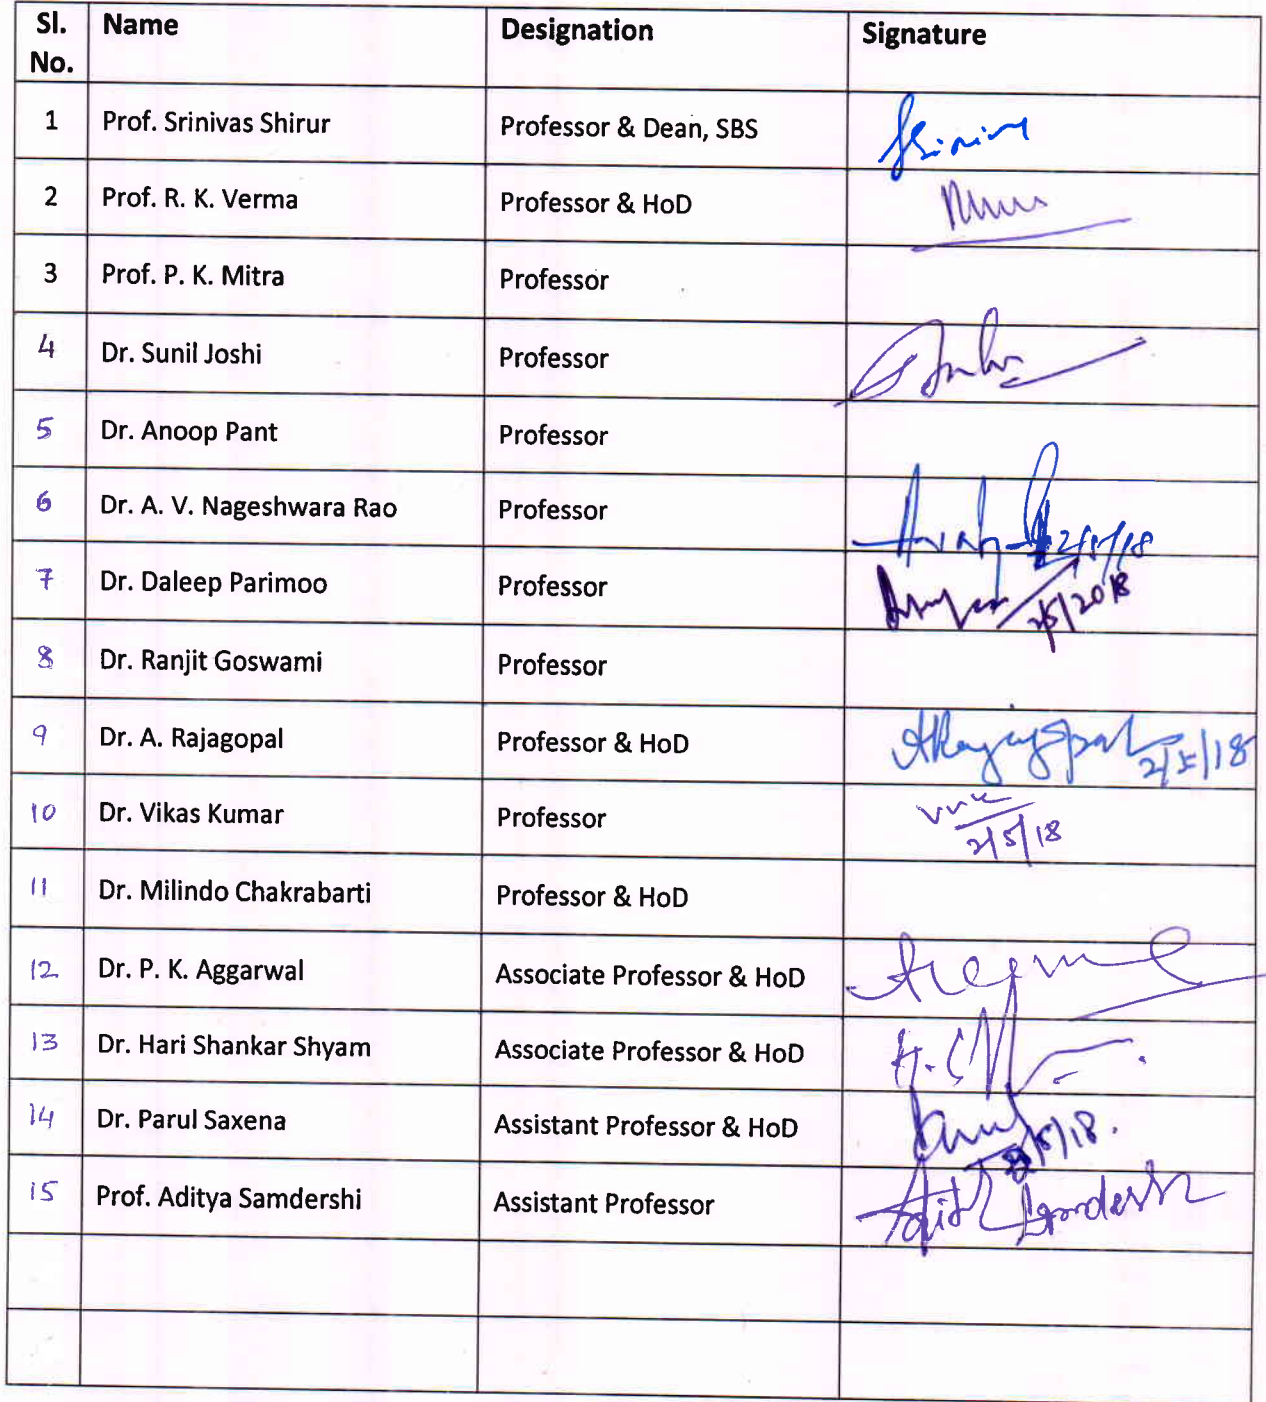 Sl. No. Name Designation Signature
1 Prof. Srinivas Shirur Professor & Dean, SBS
2 Prof. R. K. Verma Professor & HoD
3 Prof. P. K. Mitra Professor
4 Dr. Sunil Joshi Professor
5 Dr. Anoop Pant Professor
6 Dr. A. V. Nageshwara Rao Professor 2/5/18
7 Dr. Daleep Parimoo Professor 2/5/2018
8 Dr. Ranjit Goswami Professor
9 Dr. A. Rajagopal Professor & HoD ARajagopal 2/5/18
10 Dr. Vikas Kumar Professor 2/5/18
11 Dr. Milindo Chakrabarti Professor & HoD
12 Dr. P. K. Aggarwal Associate Professor & HoD
13 Dr. Hari Shankar Shyam Associate Professor & HoD
14 Dr. Parul Saxena Assistant Professor & HoD
15 Prof. Aditya Samdershi Assistant Professor